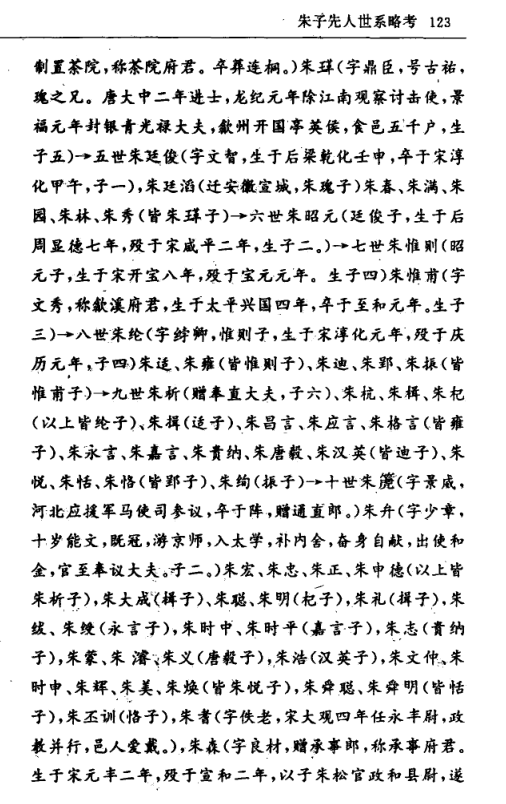 朱子先人世系略考 123
制置茶院,称茶院府君。卒葬连桐。)朱瓌(字鼎臣,号古祐,
瑰之兄。唐大中二年进士,龙纪元年除江南观察讨击使,景
福元年封银青光禄大夫,歙州开国亭英侯,食邑五千户,生
子五)→五世朱廷俊(字文智,生于后梁乾化壬申,卒于宋淳
化甲午,子一),朱廷滔(迁安徽宣城,朱瑰子)朱春、朱满、朱
园、朱林、朱秀(皆朱子)→六世朱昭元(廷俊子,生于后
周显德七年,殁于宋咸平二年,生子二。)→七世朱惟则(昭
元子,生于宋开宝八年,殁于宝元元年。生子四)朱惟甫(字
文秀,称歙溪府君,生于太平兴国四年,卒于至和元年。生子
三)→八世朱纶(字绋卿,惟则子,生于宋淳化元年,殁于庆
历元年,子四)朱适、朱雍(皆惟则子)、朱迪、朱郢、朱振(皆
惟甫子)→九世朱析(赠奉直大夫,子六)、朱杭、朱楫、朱杞
(以上皆纶子)、朱揖(适子)、朱昌言、朱应言、朱格言(皆雍
子)、朱永言、朱嘉言、朱贵纳、朱唐毅、朱汉英(皆迪子)、朱
悦、朱恬、朱恪(皆郢子)、朱绚(振子)→十世朱(字景威,
河北应援军马使司参议,卒于阵,赠通直郎。)朱弁(字少章,
十岁能文,既冠,游京师,入太学,补内舍,奋身自献,出使和
金,官至奉议大夫。子二。)朱宏、朱忠、朱正、朱中德(以上皆
朱析子),朱大成(楫子)、朱聪、朱明(杞子)、朱礼(揖子),朱
绂、朱绶(永言子)、朱时中、朱时平(嘉言子),朱志(贵纳
子),朱蒙、朱濬、朱义(唐毅子),朱浩(汉英子),朱文仲、朱
时中、朱辉、朱美、朱焕(皆朱悦子),朱舜聪、朱舜明(皆恬
子),朱丕训(恪子),朱耆(字佚老,宋大观四年任永丰尉,政
教并行,邑人爱戴。),朱森(字良材,赠承事郎,称承事府君。
生于宋元丰二年,殁于宣和二年,以子朱松官政和县尉,遂